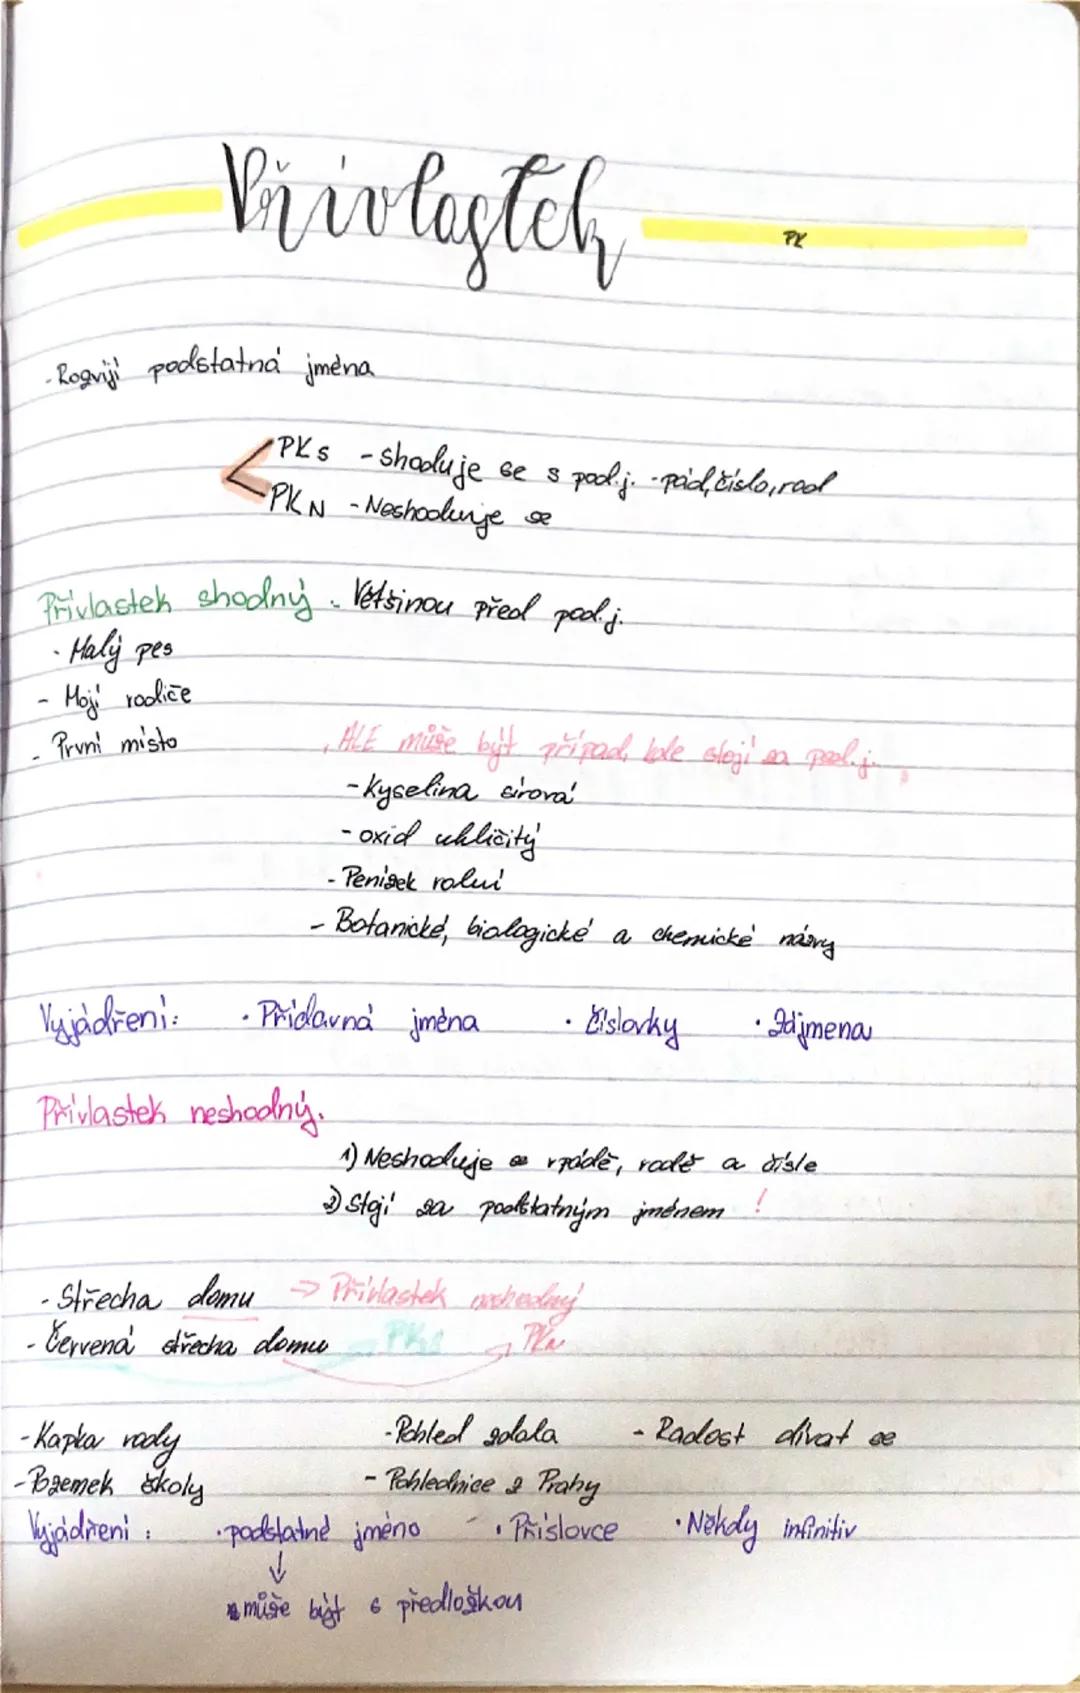 Přívlastek
PK
- Rozvíjí podstatná jména
PKs - shoduje se s pod.j. - pád, číslo, rod
PKN - Neshoduje se
Přívlastek shodný - Většinou před pod.j.
- Malý pes
- Moji rodiče
- První místo
, ALE může být případ, kde stojí za pod.j.
- Kyselina sírová
- oxid uhličitý
- Penízek rolní
- Botanické, biologické a chemické názvy
Vyjádření: · Přídavná jména · číslovky · zájmena
Přívlastek neshodný.
1) Neshoduje se v pádě, rodě a čísle
2) Stojí za podstatným jménem !
- Střecha domu => Přívlastek neshodný
- Červená střecha domu PKs PKn
- Kapka vody - Pohled zdola - Radost dívat se
- Pozemek školy - Pohlednice z Prahy
Vyjádření: · podstatné jméno · Příslovce · Někdy infinitiv
↓
může být s předložkou